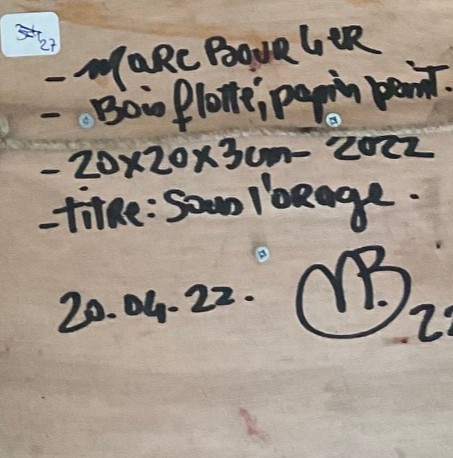 - MARC BOURLIER
- Bois flotté, papier peint.
- 20x20x3cm - 2022
- titRe: Sous l'oRage.
20.04.22.
MB. 22
27